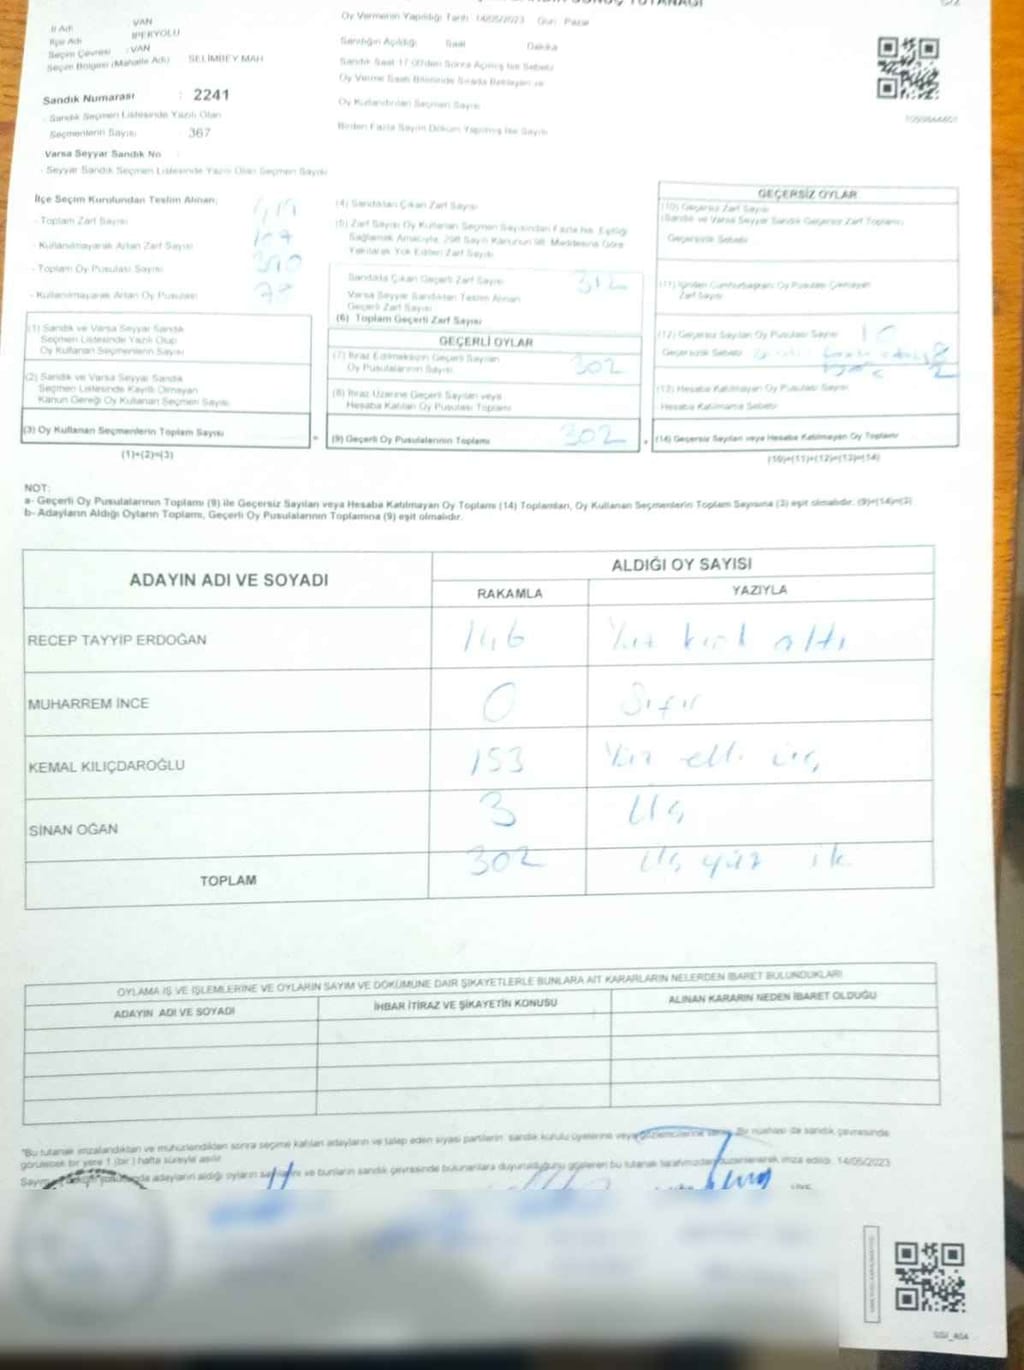 İl Adı VAN
İlçe Adı İPEKYOLU
Seçim Çevresi : VAN
Seçim Bölgesi (Mahalle Adı) SELİMBEY MAH
Sandık Numarası : 2241
- Sandık Seçmen Listesinde Yazılı Olan
Seçmenlerin Sayısı : 367
Varsa Seyyar Sandık No
- Seyyar Sandık Seçmen Listesinde Yazılı Olan Seçmen Sayısı
Oy Vermenin Yapıldığı Tarih : 14/05/2023 Gün : Pazar
Sandığın Açıldığı Saat Dakika
Sandık Saat 17.00'den Sonra Açılmış İse Sebebi
Oy Verme Saati Bitiminde Sırada Bekleyen ve
Oy Kullandırılan Seçmen Sayısı
Birden Fazla Sayım Döküm Yapılmış İse Sayısı
İlçe Seçim Kurulundan Teslim Alınan;
- Toplam Zarf Sayısı
- Kullanılmayarak Artan Zarf Sayısı
- Toplam Oy Pusulası Sayısı
- Kullanılmayarak Artan Oy Pusulası
(1) Sandık ve Varsa Seyyar Sandık
Seçmen Listesinde Yazılı Olup
Oy Kullanan Seçmenlerin Sayısı
(2) Sandık ve Varsa Seyyar Sandık
Seçmen Listesinde Kayıtlı Olmayan
Kanun Gereği Oy Kullanan Seçmen Sayısı
(3) Oy Kullanan Seçmenlerin Toplam Sayısı
(1)+(2)=(3)
(4) Sandıktan Çıkan Zarf Sayısı
(5) Zarf Sayısı Oy Kullanan Seçmen Sayısından Fazla İse, Eşitliği
Sağlamak Amacıyla, 298 Sayılı Kanunun 98. Maddesine Göre
Yakılarak Yok Edilen Zarf Sayısı
Sandıkta Çıkan Geçerli Zarf Sayısı 312
Varsa Seyyar Sandıktan Teslim Alınan
Geçerli Zarf Sayısı
(6) Toplam Geçerli Zarf Sayısı
GEÇERLİ OYLAR
(7) İtiraz Edilmeksizin Geçerli Sayılan
Oy Pusulalarının Sayısı 302
(8) İtiraz Üzerine Geçerli Sayılan veya
Hesaba Katılan Oy Pusulası Toplamı
(9) Geçerli Oy Pusulalarının Toplamı 302
GEÇERSİZ OYLAR
(10) Geçersiz Zarf Sayısı
(Sandık ve Varsa Seyyar Sandık Geçersiz Zarf Toplamı)
Geçersizlik Sebebi
(11) İçinden Cumhurbaşkanı Oy Pusulası Çıkmayan
Zarf Sayısı
(12) Geçersiz Sayılan Oy Pusulası Sayısı 10
Geçersizlik Sebebi
(13) Hesaba Katılmayan Oy Pusulası Sayısı
Hesaba Katılmama Sebebi
(14) Geçersiz Sayılan veya Hesaba Katılmayan Oy Toplamı
(10)+(11)+(12)+(13)=(14)
NOT:
a- Geçerli Oy Pusulalarının Toplamı (9) ile Geçersiz Sayılan veya Hesaba Katılmayan Oy Toplamı (14) Toplamları, Oy Kullanan Seçmenlerin Toplam Sayısına (3) eşit olmalıdır. (9)+(14)=(3)
b- Adayların Aldığı Oyların Toplamı, Geçerli Oy Pusulalarının Toplamına (9) eşit olmalıdır.
ADAYIN ADI VE SOYADI ALDIĞI OY SAYISI
RAKAMLA YAZIYLA
RECEP TAYYİP ERDOĞAN 146 Yüz kırk altı
MUHARREM İNCE 0 Sıfır
KEMAL KILIÇDAROĞLU 153 Yüz elli üç
SİNAN OĞAN 3 Üç
TOPLAM 302 Üç yüz ik
OYLAMA İŞ VE İŞLEMLERİNE VE OYLARIN SAYIM VE DÖKÜMÜNE DAİR ŞİKAYETLERLE BUNLARA AİT KARARLARIN NELERDEN İBARET BULUNDUKLARI
ADAYIN ADI VE SOYADI İHBAR İTİRAZ VE ŞİKAYETİN KONUSU ALINAN KARARIN NEDEN İBARET OLDUĞU
"Bu tutanak imzalandıktan ve mühürlendikten sonra seçime katılan adayların ve talep eden siyasi partilerin sandık kurulu üyelerine veya gözlemcilerine Bir nüshası da sandık çevresinde
görülecek bir yere 1 (bir) hafta süreyle asılır.
adayların aldığı oyların ve bunların sandık çevresinde bulunanlara duyurulduğunu gösteren bu tutanak tarafımızdan düzenlenerek imza edildi. 14/05/2023